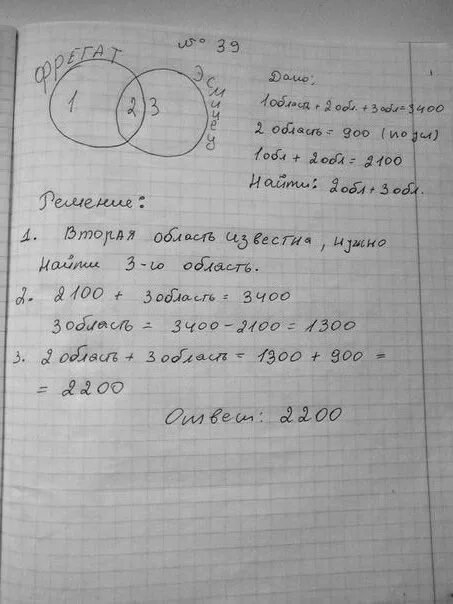 № 39
ФРЕГАТ
Эсминец
1 2 3
Дано:
1область + 2обл + 3обл = 3400
2 область = 900 (по усл)
1обл + 2обл = 2100
Найти: 2обл + 3обл.
Решение:
1. Вторая область известна, нужно
найти 3-ю область.
2. 2100 + 3область = 3400
3область = 3400 - 2100 = 1300
3. 2область + 3область = 1300 + 900 =
= 2200
Ответ: 2200